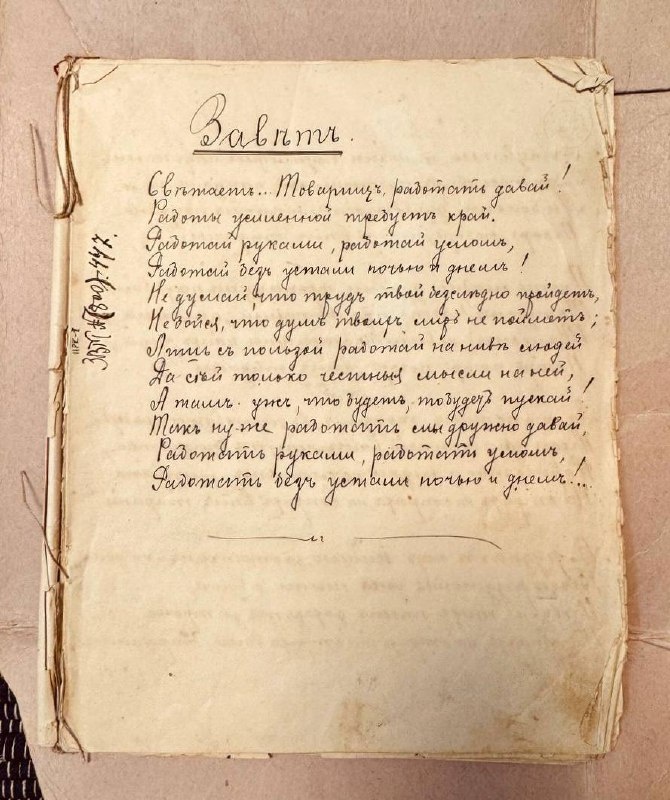 Завѣтъ.
Свѣтаетъ... Товарищъ, работать давай!
Работы усиленной требуетъ край.
Работай руками, работай умомъ,
Работай безъ устали ночью и днемъ!
Не думай, что трудъ твой безслѣдно пройдетъ,
Не бойся, что думъ твоихъ миръ не пойметъ;
Лишь съ пользой работай на нивѣ людей
Да сѣй только честныя мысли на ней,
А тамъ ужъ, что будетъ, то будетъ пускай!
Такъ ну-же работать мы дружно давай,
Работать руками, работать умомъ,
Работать безъ устали ночью и днемъ!...